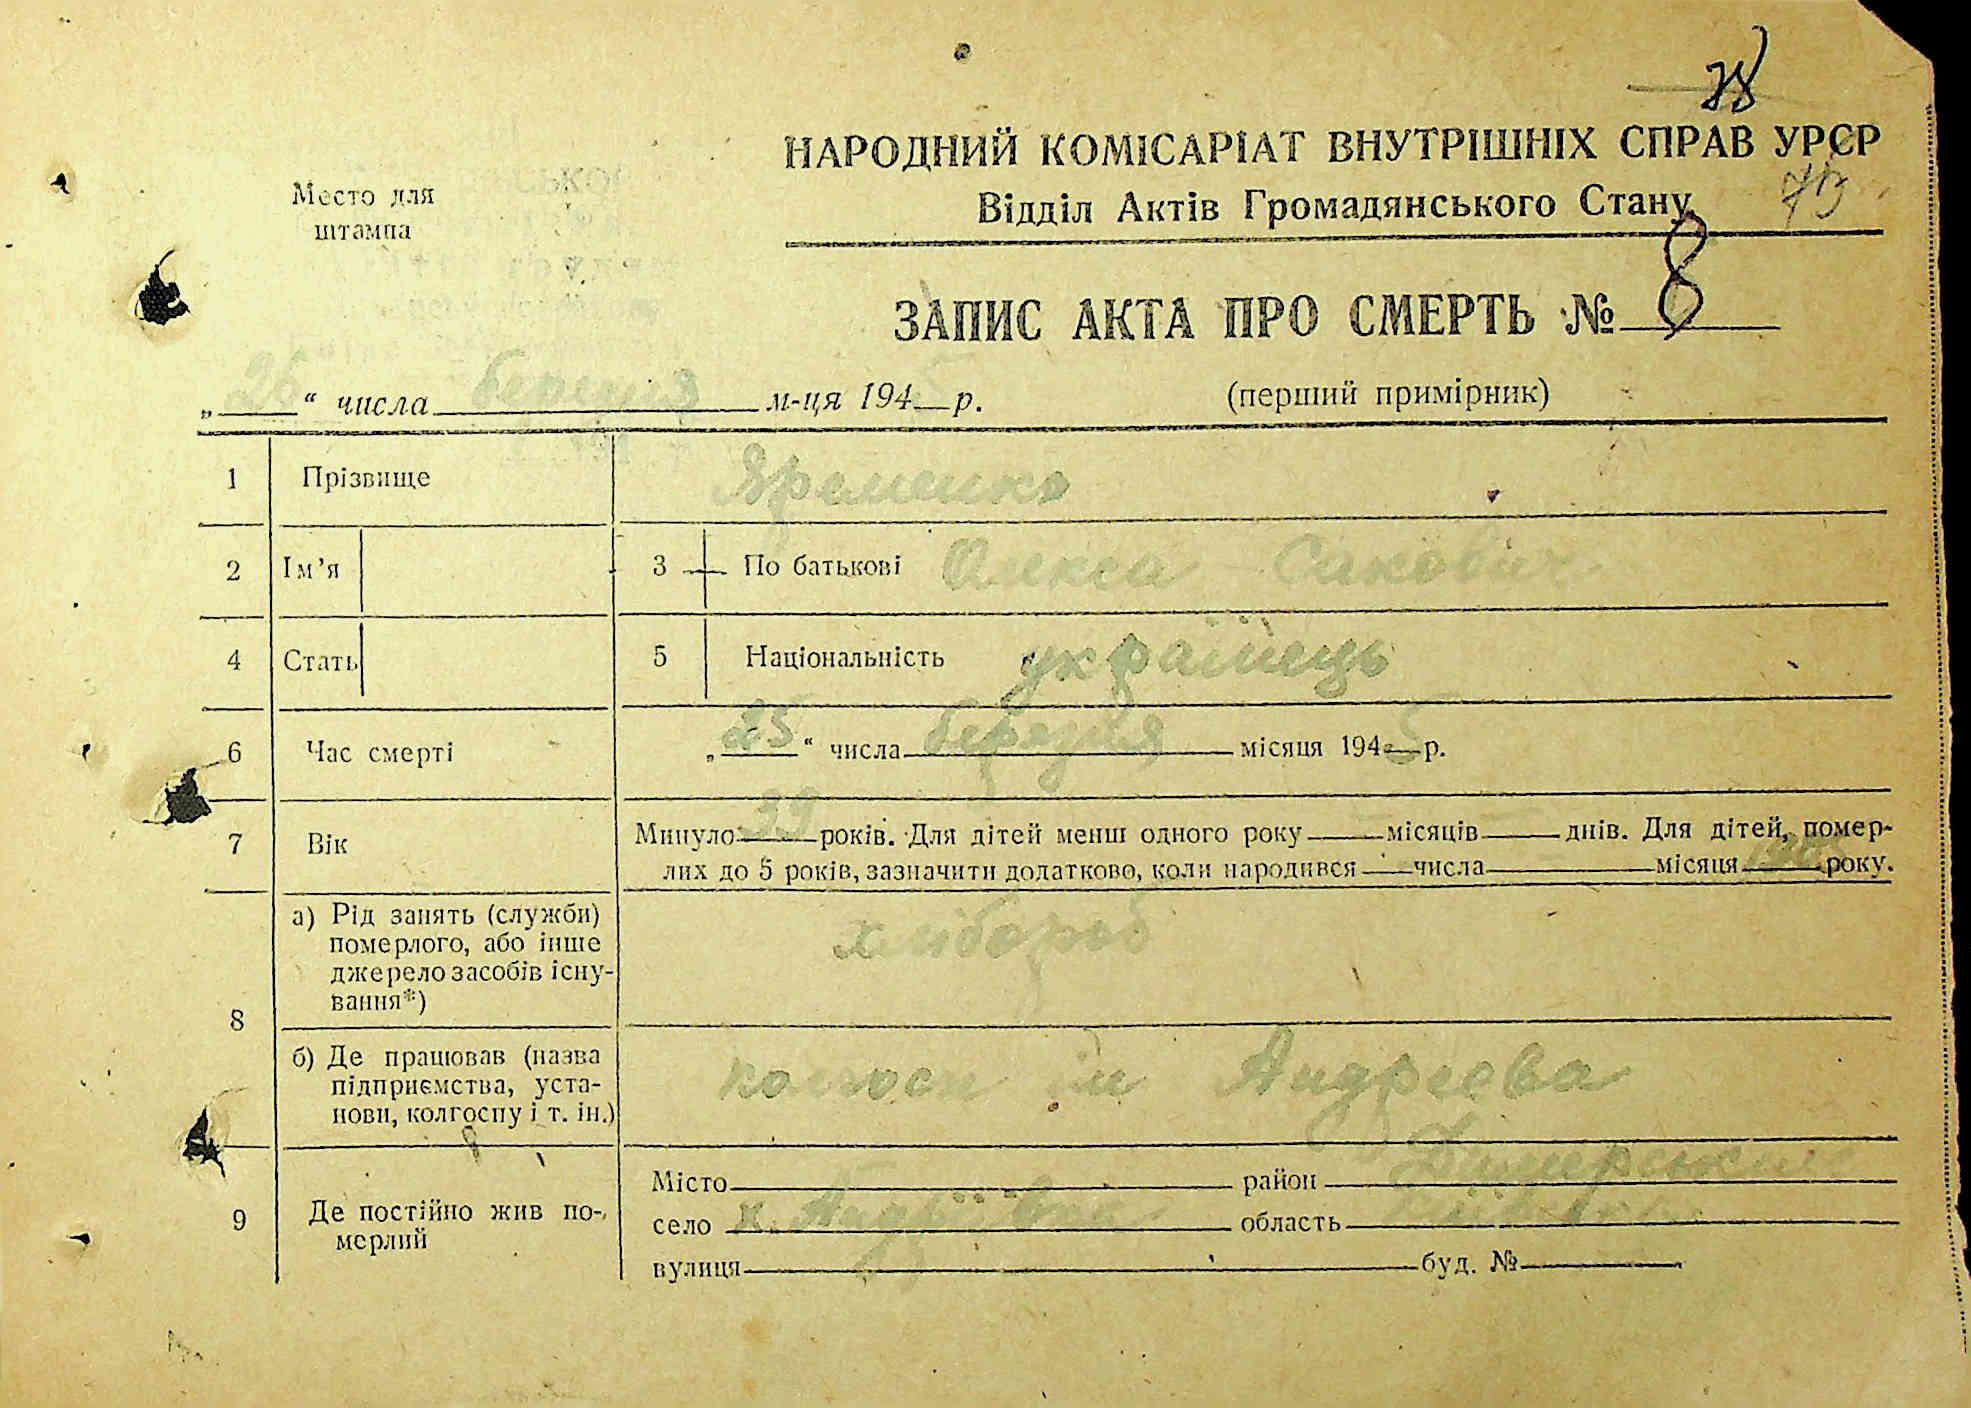 78
НАРОДНИЙ КОМІСАРІАТ ВНУТРІШНІХ СПРАВ УРСР
Место для
штампа
Відділ Актів Громадянського Стану
ЗАПИС АКТА ПРО СМЕРТЬ № 8
„26“ числа березня м-ця 1945 р. (перший примірник)
1 Прізвище Яременко
2 Ім’я 3 По батькові Олекса Сакович
4 Стать 5 Національність українець
6 Час смерті „25“ числа березня місяця 1945 р.
7 Вік Минуло 39 років. Для дітей менш одного року — місяців — днів. Для дітей, помер-
лих до 5 років, зазначити додатково, коли народився — числа місяця року.
8 а) Рід занять (служби)
померлого, або інше
джерело засобів існу-
вання*)
хлібороб
б) Де працював (назва
підприємства, уста-
нови, колгоспу і т. ін.)
колгосп ім Андреєва
9 Де постійно жив по-
мерлий
Місто район Димерський
село Н. Андріївка область Київська
вулиця буд. №